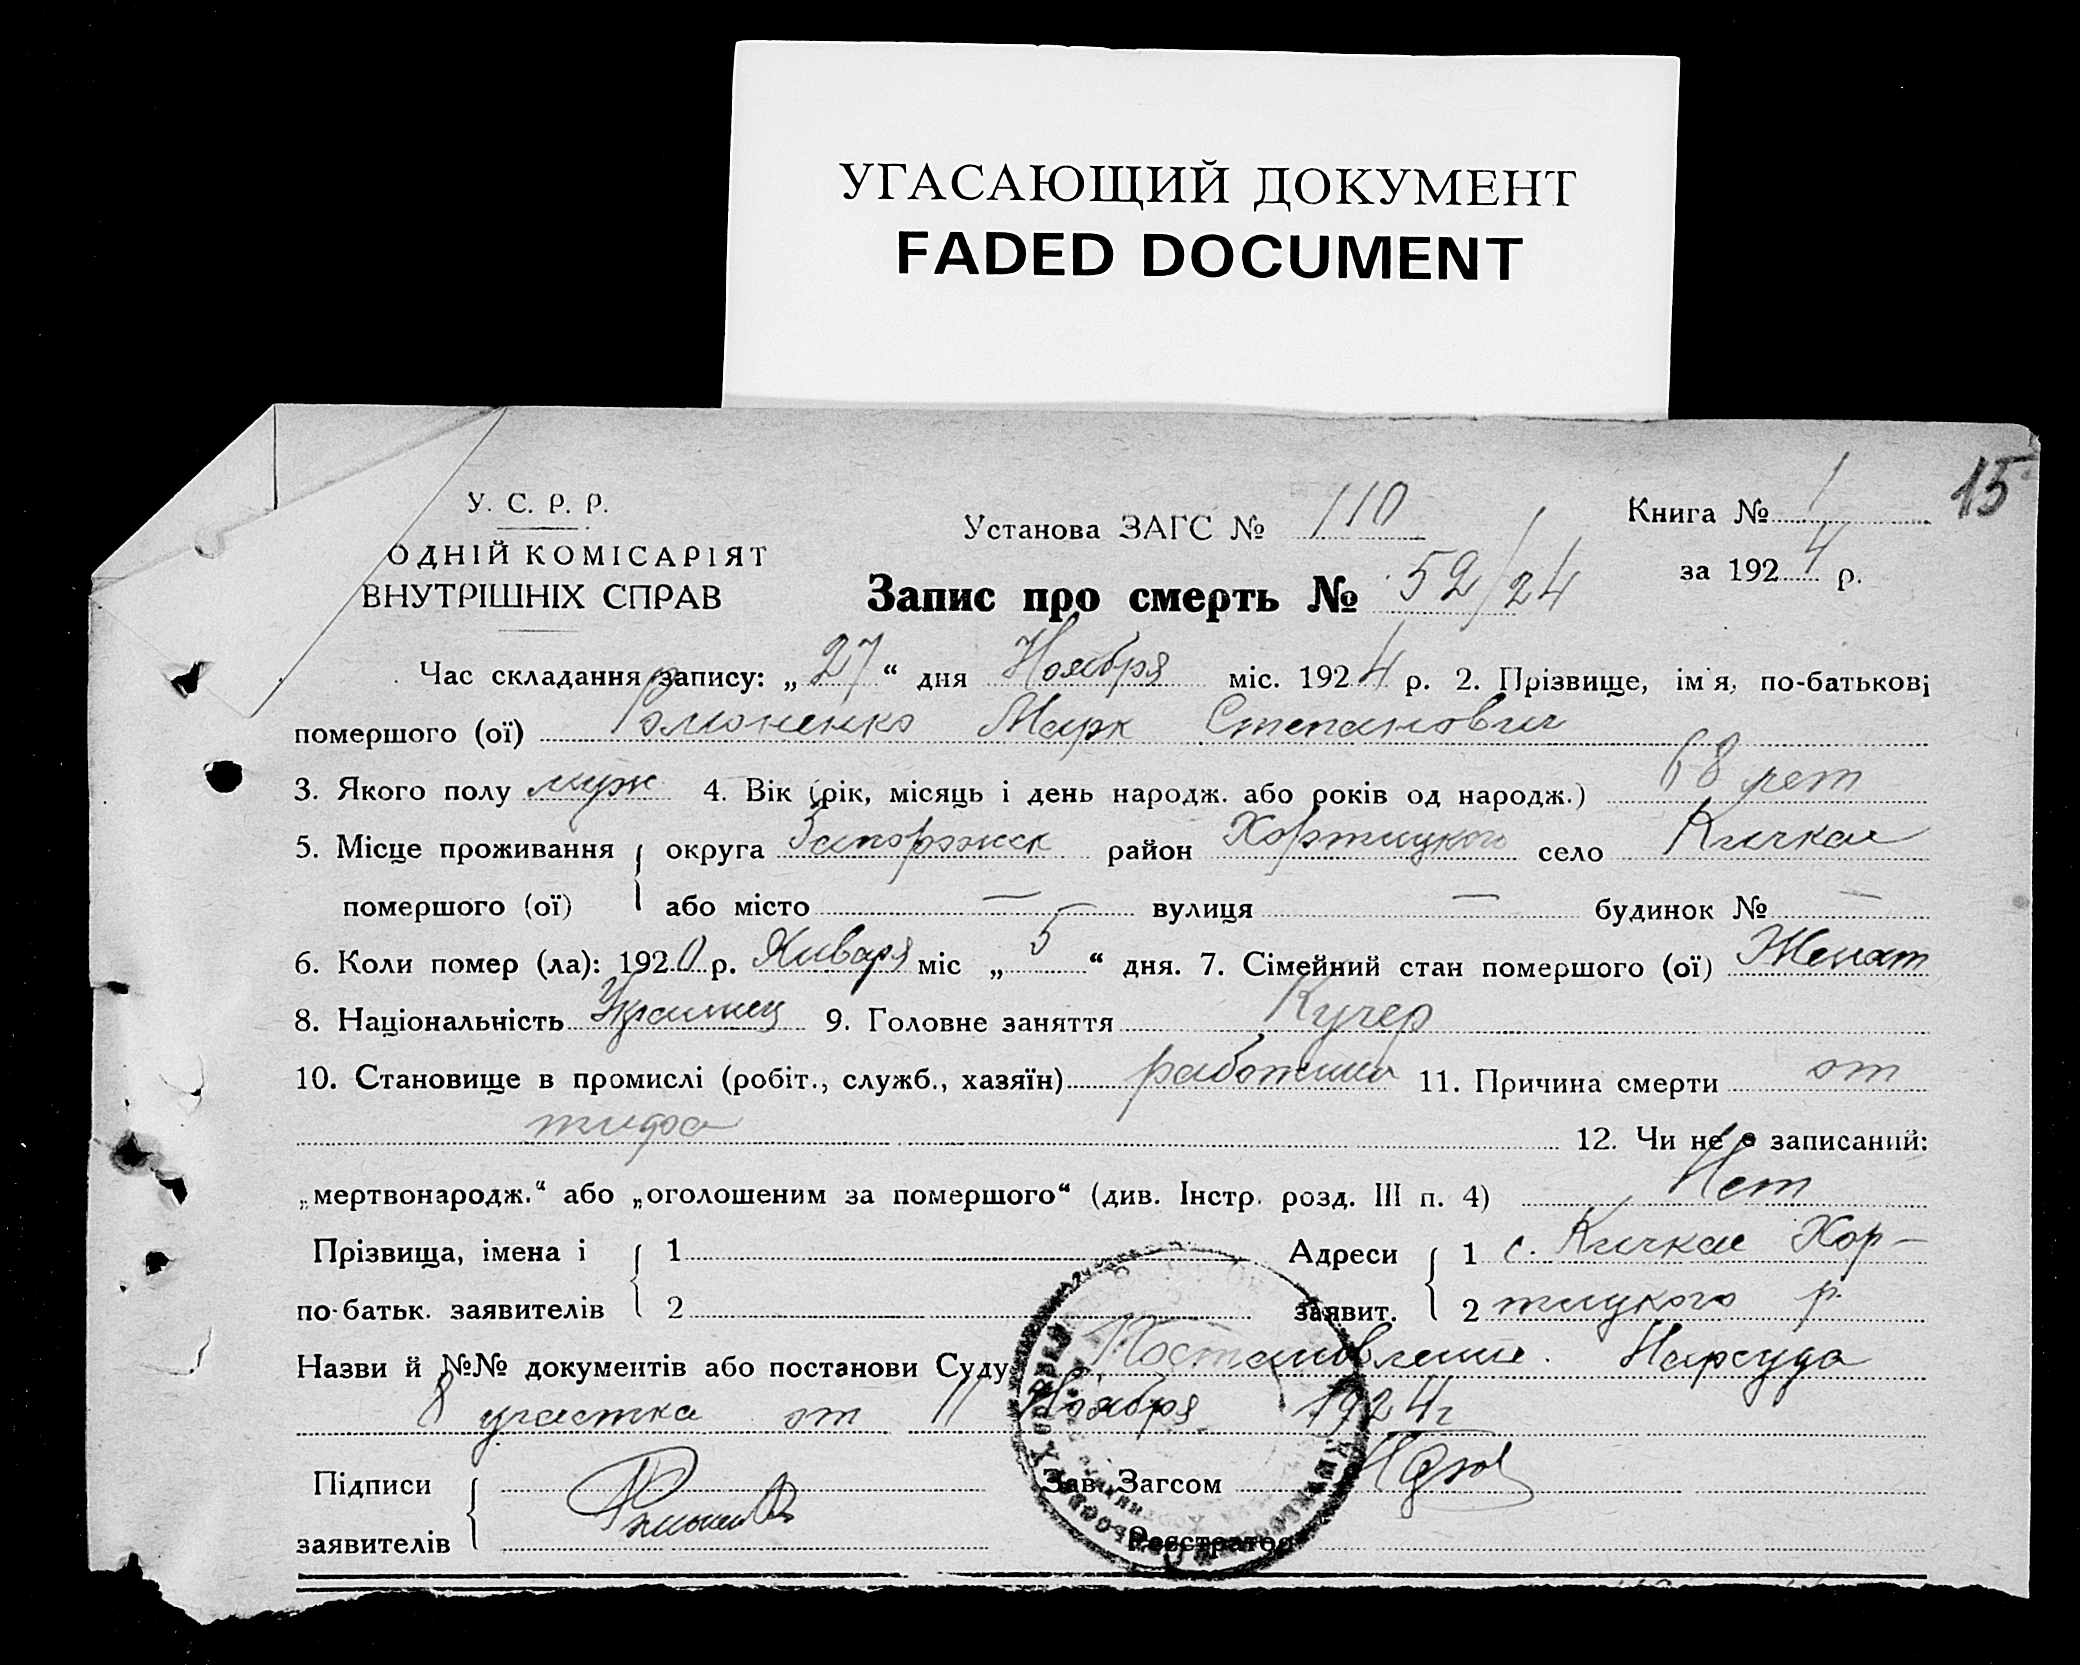 УГАСАЮЩИЙ ДОКУМЕНТ
FADED DOCUMENT
15
У. С. Р. Р.
Установа ЗАГС № 110
Книга № 1
ОДНІЙ КОМІСАРІЯТ
ВНУТРІШНІХ СПРАВ
Запис про смерть № 52/24
за 1924 р.
Час складання запису: „27“ дня Ноября міс. 1924 р. 2. Прізвище, ім'я, по-батькові
помершого (ої) Марк Степанович
3. Якого полу муж 4. Вік (рік, місяць і день народж. або років од народж.) 68 лет
5. Місце проживання округа Запорожск район Хортицкого село Кичкас
помершого (ої) або місто — вулиця — будинок № —
6. Коли помер (ла): 1920 р. Января міс „5“ дня. 7. Сімейний стан помершого (ої) Женат
8. Національність Украинец 9. Головне заняття Кучер
10. Становище в промислі (робіт., служб., хазяїн) 11. Причина смерти от
тифа 12. Чи не є записаний:
„мертвонародж.“ або „оголошеним за помершого“ (див. Інстр. розд. III п. 4) Нет
Прізвища, імена і 1 Адреси 1 с. Кичкас Хор-
по-батьк. заявителів 2 заявит. 2 тицкого р.
Назви й №№ документів або постанови Суду Постановление Нарсуда
8 участка от 11 Ноября 1924 г
Підписи Зав. Загсом
заявителів Реєстратор